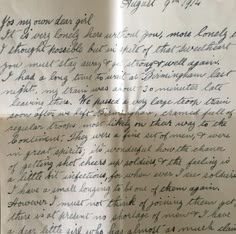 August 9th 1914
To my own dear girl
It is very lonely here without you, more lonely
I thought possible but in spite of that sweetheart
you must stay away & get strong & well again
I had a long time to wait at Birmingham last
night, my train was about 70 minutes late
leaving there. We passed a very large troop train
soon after we left Birmingham, crammed full of
regular troops most likely on their way to the
Continent. They were a fine set of men & were
in great spirits; its wonderful how the chance
of getting shot cheers up soldiers & the feeling is
a little bit infectious, for when ever I see soldiers
I have a small longing to be one of them again.
However I must not think of joining them yet,
there is at present no shortage of men & I have
a dear little girl who has almost as much claim